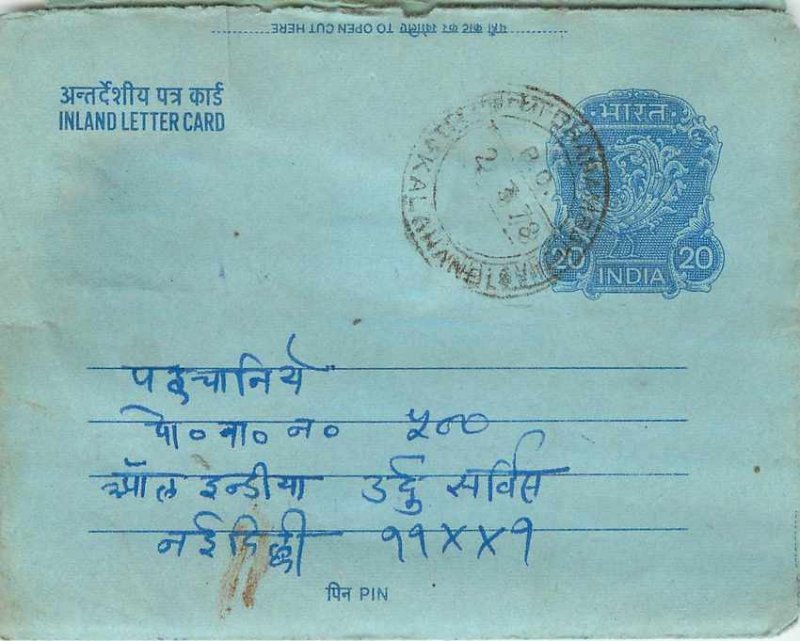 यहाँ काट कर खोलिए TO OPEN CUT HERE
अन्तर्देशीय पत्र कार्ड
INLAND LETTER CARD
भारत
20 20
INDIA
पहचानिये
पो० बा० न०
ऑल इन्डीया उर्दु सर्विस
नई दिल्ली ११××१
पिन PIN